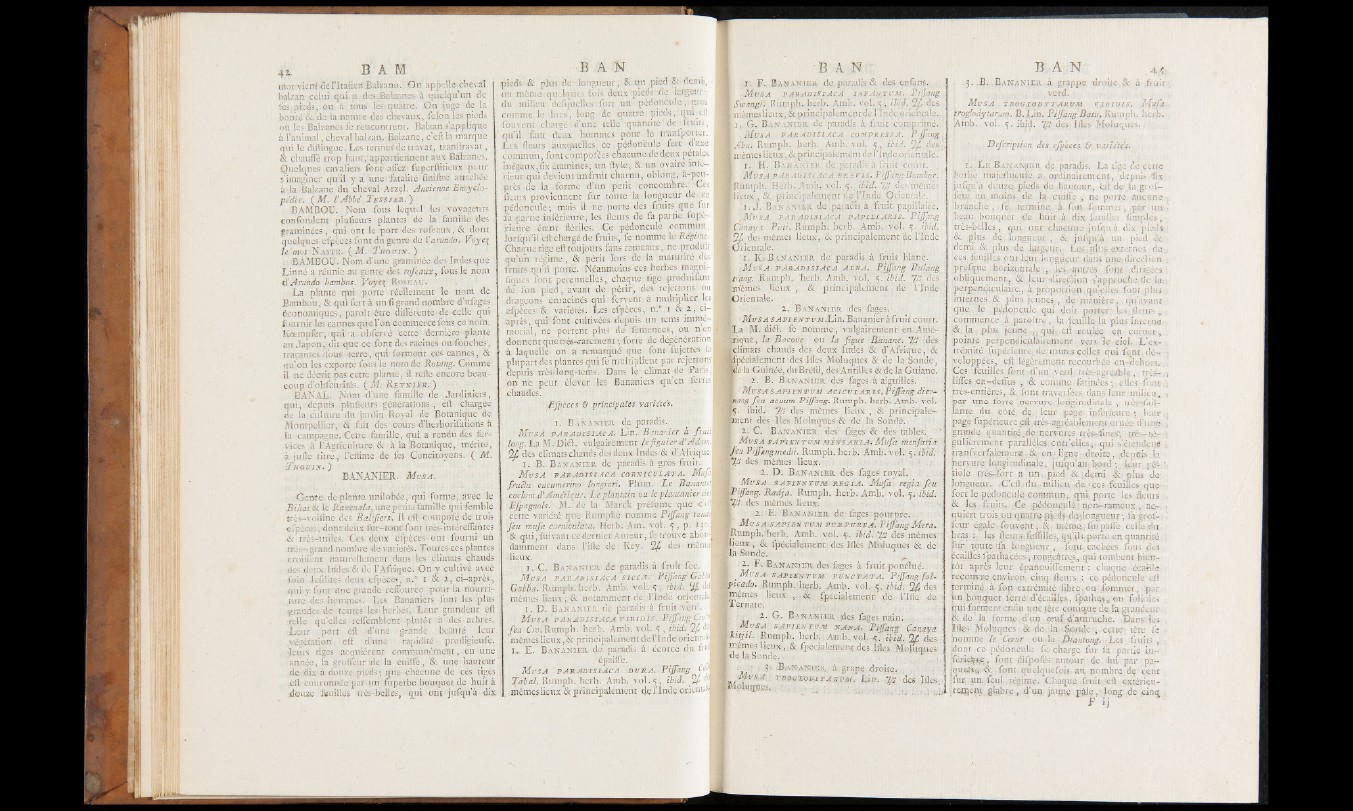 42 B A M
mot vient de l'Italien Balzano. On appelle cheval
balzan celui qui a des Balzanes à quelqu'un de
ses pieds, ou à tous les quatre. On juge de la
bonté & de la nature des chevaux, selon les pieds
où les Balzanes se rencontrent. Balzan s'applique
à l'animal, cheval balzan. Balzane, c'est la marque
qui le distingue. Les termes de travat, transtravat,
& chaussé trop haut, appartiennent aux Balzanes.
Quelques cavaliers sont assez superstitieux pour
s'imaginer qu'il y a une fatalité sinistre attachée
à la Balzane du cheval Arzel. Ancienne Encyclo-
pédie. ( M. l'Abbé TESSIER. )
BAMBOU. Nom sous lequel les voyageurs
confondent plusieurs plantes de la famille des
graminées, qui ont le port des roseaux, & dont
quelques espèces sont du genre de l'arundo. Voyez
le mot NASTE. ( M. THOUIN. )
BAMBOU. Nom d'une graminée des Indes que
Linné a réunie au genre des roseaux, sous le nom
d'Arundo bambos. Voyez ROSEAU.
La plante qui porte réellement le nom de
Bambou, & qui sert à un si grand nombre d'usages
économiques, paroît être différente de celle qui
fournit les cannes que l'on commerce sous ce nom.
Kæmpfer, qui a observé cette dernière plante
au Japon, dit que ce sont des racines ou souches,
traçantes sous terre, qui forment ces cannes, &
qu'on les exporte sous le nom de Rotang. Comme
il ne décrit pas cette plante, il reste encore beau-
coup d'obscurités. ( M. REYNIER. )
BANAL. Nom d'une famille de Jardiniers,
qui, depuis plusieurs générations, est chargée
de la culture du jardin Royal de Botanique de
Montpellier, & fait des cours d'herborisations à
la campagne. Cette famille, qui a rendu des ser-
vices à l'Agriculture & à la Botanique, mérite,
à juste titre, l'estime de ses Concitoyens. ( M.
THOUIN. )
BANANIER. MUSA.
Genre de plante unilobée, qui forme, avec le
Bihai & le Ravenala, une petite famille qui semble
très-voisine des Balisiers. Il est composé de trois
espèces, dont deux sur-tout sont très-intéressantes
& très-utiles. Ces deux espèces ont fourni un
très-grand nombre de variétés. Toutes ces plantes
croissent naturellement dans les climats chauds
des deux Indes & de l'Afrique. On y cultive avec
soin lesdites deux espèces, n.° 1 & 2, ci-après,
qui y sont une grande ressource pour la nourri-
ture des hommes. Les Bananiers sont les plus
grandes de toutes les herbes. Leur grandeur est
telle qu'elles ressemblent plutôt à des arbres.
Leur port est d'une grande beauté leur
végétation est d'une rapidité prodigieuse.
leurs tiges acquièrent communément, en une
année, la grosseur de la cuisse, & une hauteur
de dix à douze pieds; que chacune de ces tiges
est couronnée par un superbe bouquet de huit à
douze feuilles très-belles, qui ont jusqu'à dix
B A N
pieds & plus de longueur, & un pied & demi,
ou même quelques fois deux pieds de largeur:
du milieu desquelles sort un pédoncule, gros
comme le bras, long de quatre pieds, qui est
souvent chargé d'une telle quantité de fruits,
qu'il faut deux hommes pour le transporter.
Les fleurs auxquelles ce pédoncule sert d'axe
commun, sont composées chacune de deux pétales
inégaux, six étamines, un style, & un ovaire infé-
rieur qui devient un fruit charnu, oblong, à-peu-
près de la forme d'un petit concombre. Ces
fleurs proviennent sur toute la longueur de ce
pédoncule; mais il ne porte des fruits que sur
sa partie inférieure, les fleurs de sa partie supé-
rieure étant stériles. Ce pédoncule commun,
lorsqu'il est chargé de fruits, se nomme le Régime.
Chaque tige est toujours sans rameaux, ne produit
qu'un régime, & périt lors de la maturité des
fruits qu'il porte. Néanmoins ces herbes magni-
fiques sont perennelles, chaque tige produisant
de son pied, avant de périr, des rejetons ou
drageons enracinés qui servent à multiplier les
espèces & variétés. Les espèces, n.° 1 & 2, ci-
après, qui sont cultivées depuis un tems immé-
morial, ne portent plus de semences, ou n'en
donnent que très-rarement; sorte de dégénération
à laquelle on a remarqué que sont sujettes la
plupart des plantes qui se multiplient par rejetons
depuis très-long-tems. Dans le climat de Paris,
on ne peut élever les Bananiers qu'en serres
chaudes.
Espèces & principales variétés.
1. BANANIER de paradis.
MUSA PARADISIACA. Lin. Bananier à fruit
long. La M. Dict. vulgairement le figuier d'Adam.
♃ des climats chauds des deux Indes & d'Afrique.
1. B. BANANIER de paradis à gros fruit.
MUSA PARADISIACA CORNICULATA. Musa
fructu cucumerino longiori. Plum. Le Bananier
cochon d'Amérique. Le plantain ou le plantanier des
Espagnols. M. de la Marck présume que c'est
cette variété que Rumphe nomme Pissang tando
seu musa corniculata. Herb. Am. vol. 5, p. 130
& qui, suivant ce dernier Auteur, se trouve abon-
damment dans l'isle de Key. ♃ des mêmes
lieux.
1. C. BANANIER de paradis à fruit sec.
MUSA PARADISIACA SICCA. Pissang Gabba
Gabba. Rumph. herb. Amb. vol. 5, ibid. ♃ des
mêmes lieux, & notamment de l'Inde orientale.
1. D. BANANIER de paradis à fruit verd.
MUSA PARADISIACA VIRIDIS. Pissang Croo
seu Cro. Rumph. herb. Amb. vol. 5, ibid. ♃ des
mêmes lieux, & principalement de l'Inde orientale.
1. E. BANANIER de paradis à écorce du fruit
épaisse.
MUSA PARADISIACA DURA. Pissang
Tabal. Rumph. herb. Amb. vol. 5, ibid. ♃
mêmes lieux & principalement de l'Inde orientale.
B A N
1. F. BANANIER de paradis & des enfans.
MUSA PARADISIACA INFANTUM. Pissang
Swangi. Rumph. herb. Amb. vol. 5, ibid. ♃ des
mêmes lieux, & principalement de l'Inde orientale.
1. G. BANANIER de paradis à fruit comprimé.
MUSA PARADISIACA COMPRESSA. Pissang
Abu. Rumph. herb. Amb. vol. 5, ibid. ♃ des
mêmes lieux, & principalement de l'Inde orientale.
1. H. BANANIER de paradis à fruit court.
MUSA PARADISIACA BREVIS. Pissang Bombor.
Rumph. Herb. Amb. vol. 5. ibid. ♃ des mêmes
lieux, & principalement de l'Inde Orientale.
1. J. BANANIER de paradis à fruit papillaire.
MUSA PARADISIACA PAPILLARIS. Pissang
Canaya Puti. Rumph. herb. Amb. vol. 5. ibid.
♃ des mêmes lieux, & principalement de l'Inde
Orientale.
1. K. BANANIER de paradis à fruit blanc.
MUSA PARADISIACA ALBA. Pissang Bulang
trang. Rumph. herb. Amb. vol. 5. ibid. ♃ des
mêmes lieux, & principalement de l'Inde
Orientale.
2. BANANIER des sages.
MUSA SAPIENTUM. Lin. Bananier à fruit court.
La M. dict. se nomme, vulgairement en Amé-
rique, la Bacove ou la figue Banane. ♃ des
climats chauds des deux Indes & d'Afrique, &
spécialement des Isles Moluques & de la Sonde,
de la Guinée, du Brésil, des Antilles & de la Guiane.
2. B. BANANIER des sages à aiguilles.
MUSA SAPIENTUM ACICULARIS. Pissang
seu acuum Pissang. Rumph. herb. Amb. vol.
5. ibid. ♃ des mêmes lieux, & principale-
ment des Isles Moluques & de la Sonde.
2. C. BANANIER des sages & des tables.
MUSA SAPIENTUM MENSARIA. Musa mensaria
seu Pissang medii. Rumph. herb. Amb. vol. 5. ibid.
♃ des mêmes lieux.
2. D. BANANIER des sages royal.
MUSA SAPIENTUM REGIA. Musa regia seu
Pissang. Radja. Rumph. herb. Amb. vol. 5. ibid.
♃ des mêmes lieux.
2. E. BANANIER des sages pourpre.
MUSA SAPIENTUM PURPUREA. Pissang Mera.
Rumph. herb. Amb. vol. 5. ibid. ♃ des mêmes
lieux, & spécialement des Isles Moluques & de
la Sonde.
2. F. BANANIER des sages à fruit ponctué.
MUSA SAPIENTUM PUNCTATA. Pissang sal-
picado. Rumph. herb. Amb. vol. 5. ibid. ♃ des
mêmes lieux, & spécialement de l'Isle de
Ternate.
2. G. BANANIER des sages nain.
MUSA SAPIENTUM NANA. Pissang Canaya
kitsjil. Rumph. herb. Amb. vol. 5. ibid. ♃ des
mêmes lieux, & spécialement des Isles Moluques
de la Sonde.
3. BANANIER, à grape droite.
MUSA TROGLODYTARUM. Lin. ♃ des Isles
Moluques.
B A N
3. B. BANANIER à grappe droite & à fruit
verd.
MUSA TROGLODYTARUM VIRIDIS. Musa
troglodytarum. B. Lin. Pissang Batu. Rumph. herb.
Amb. vol. 5. ibid. ♃ des Isles Moluques.
Description des espèces & variétés.
1. LE BANANIER de paradis. La tige de cette
herbe majestueuse a ordinairement, depuis dix
jusqu'à douze pieds de hauteur, est de la gros-
seur au moins de la cuisse, ne porte aucune
branche, se termine, à son sommet, par un
beau bouquet de huit à dix feuilles simples,
très-belles, qui ont chacune jusqu'à dix pieds
& plus de longueur, & jusqu'à un pied &
demi & plus de largeur. Les plus externes de
ces feuilles ont leur longueur dans une direction
presque horizontale, les autres sont dirigées
obliquement, & leur direction s'approche de la
perpendiculaire, à proportion qu'elles sont plus
internes & plus jeunes, de manière, qu'avant
que le pédoncule qui doit porter les fleurs,
commence à paroître, la feuille la plus interne
& la plus jeune, qui est roulée en cornet,
pointe perpendiculairement vers le ciel. L'ex-
trémité supérieure de toutes celles qui sont dé-
veloppées, est légèrement recourbée en-dehors.
Ces feuilles sont d'un verd très-agréable, très-
lisses en-dessus, & comme satinées; elles sont
très-entières, & sont traversées dans leur milieu,
par une forte nervure longitudinale, très-sail-
lante du côté de leur page inférieure; leur
page supérieure est très-agréablement ornée d'une
grande quantité de nervures très-fines, très-ré-
gulièrement parallèles entr'elles, qui s'étendent
transversalement & en ligne droite, depuis la
nervure longitudinale, jusqu'au bord; leur pé-
tiole très-fort a un pied & demi & plus de
longueur. C'est du milieu de ces feuilles que
sort le pédoncule commun, qui porte les fleurs
& les fruits. Ce pédoncule non-rameux, ac-
quiert trois ou quatre pieds de longueur; sa gros-
seur égale souvent, & même surpasse celle du
bras: les fleurs sessilles, qu'ils porte en quantité
sur toute sa longueur, sont cachées sous des
écailles spathacées, rougeâtres, qui tombent bien-
tôt après leur épanouissement: chaque écaille
recouvre environ cinq fleurs: ce pédoncule est
terminé à son extrémité libre ou sommet, par
un bouquet serré d'écailles, spathes, ou folioles
qui forment enfin une tête conique de la grandeur
& de la forme d'un œuf d'autruche. Dans les
Isles Moluques & de la Sonde, cette tête se
nomme le Cœur ou la Diantong. Les fruits,
dont ce pédoncule se charge sur sa partie in-
férieure, sont disposés autour de lui par pa-
quets, & sont quelquefois au nombre de cent
sur un seul régime. Chaque fruit est extérieu-
rement glabre, d'un jaune pâle, long de cinq
F ij